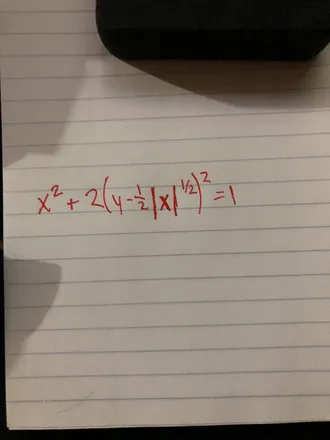 x² + 2(y-½|x|^1/2)² = 1